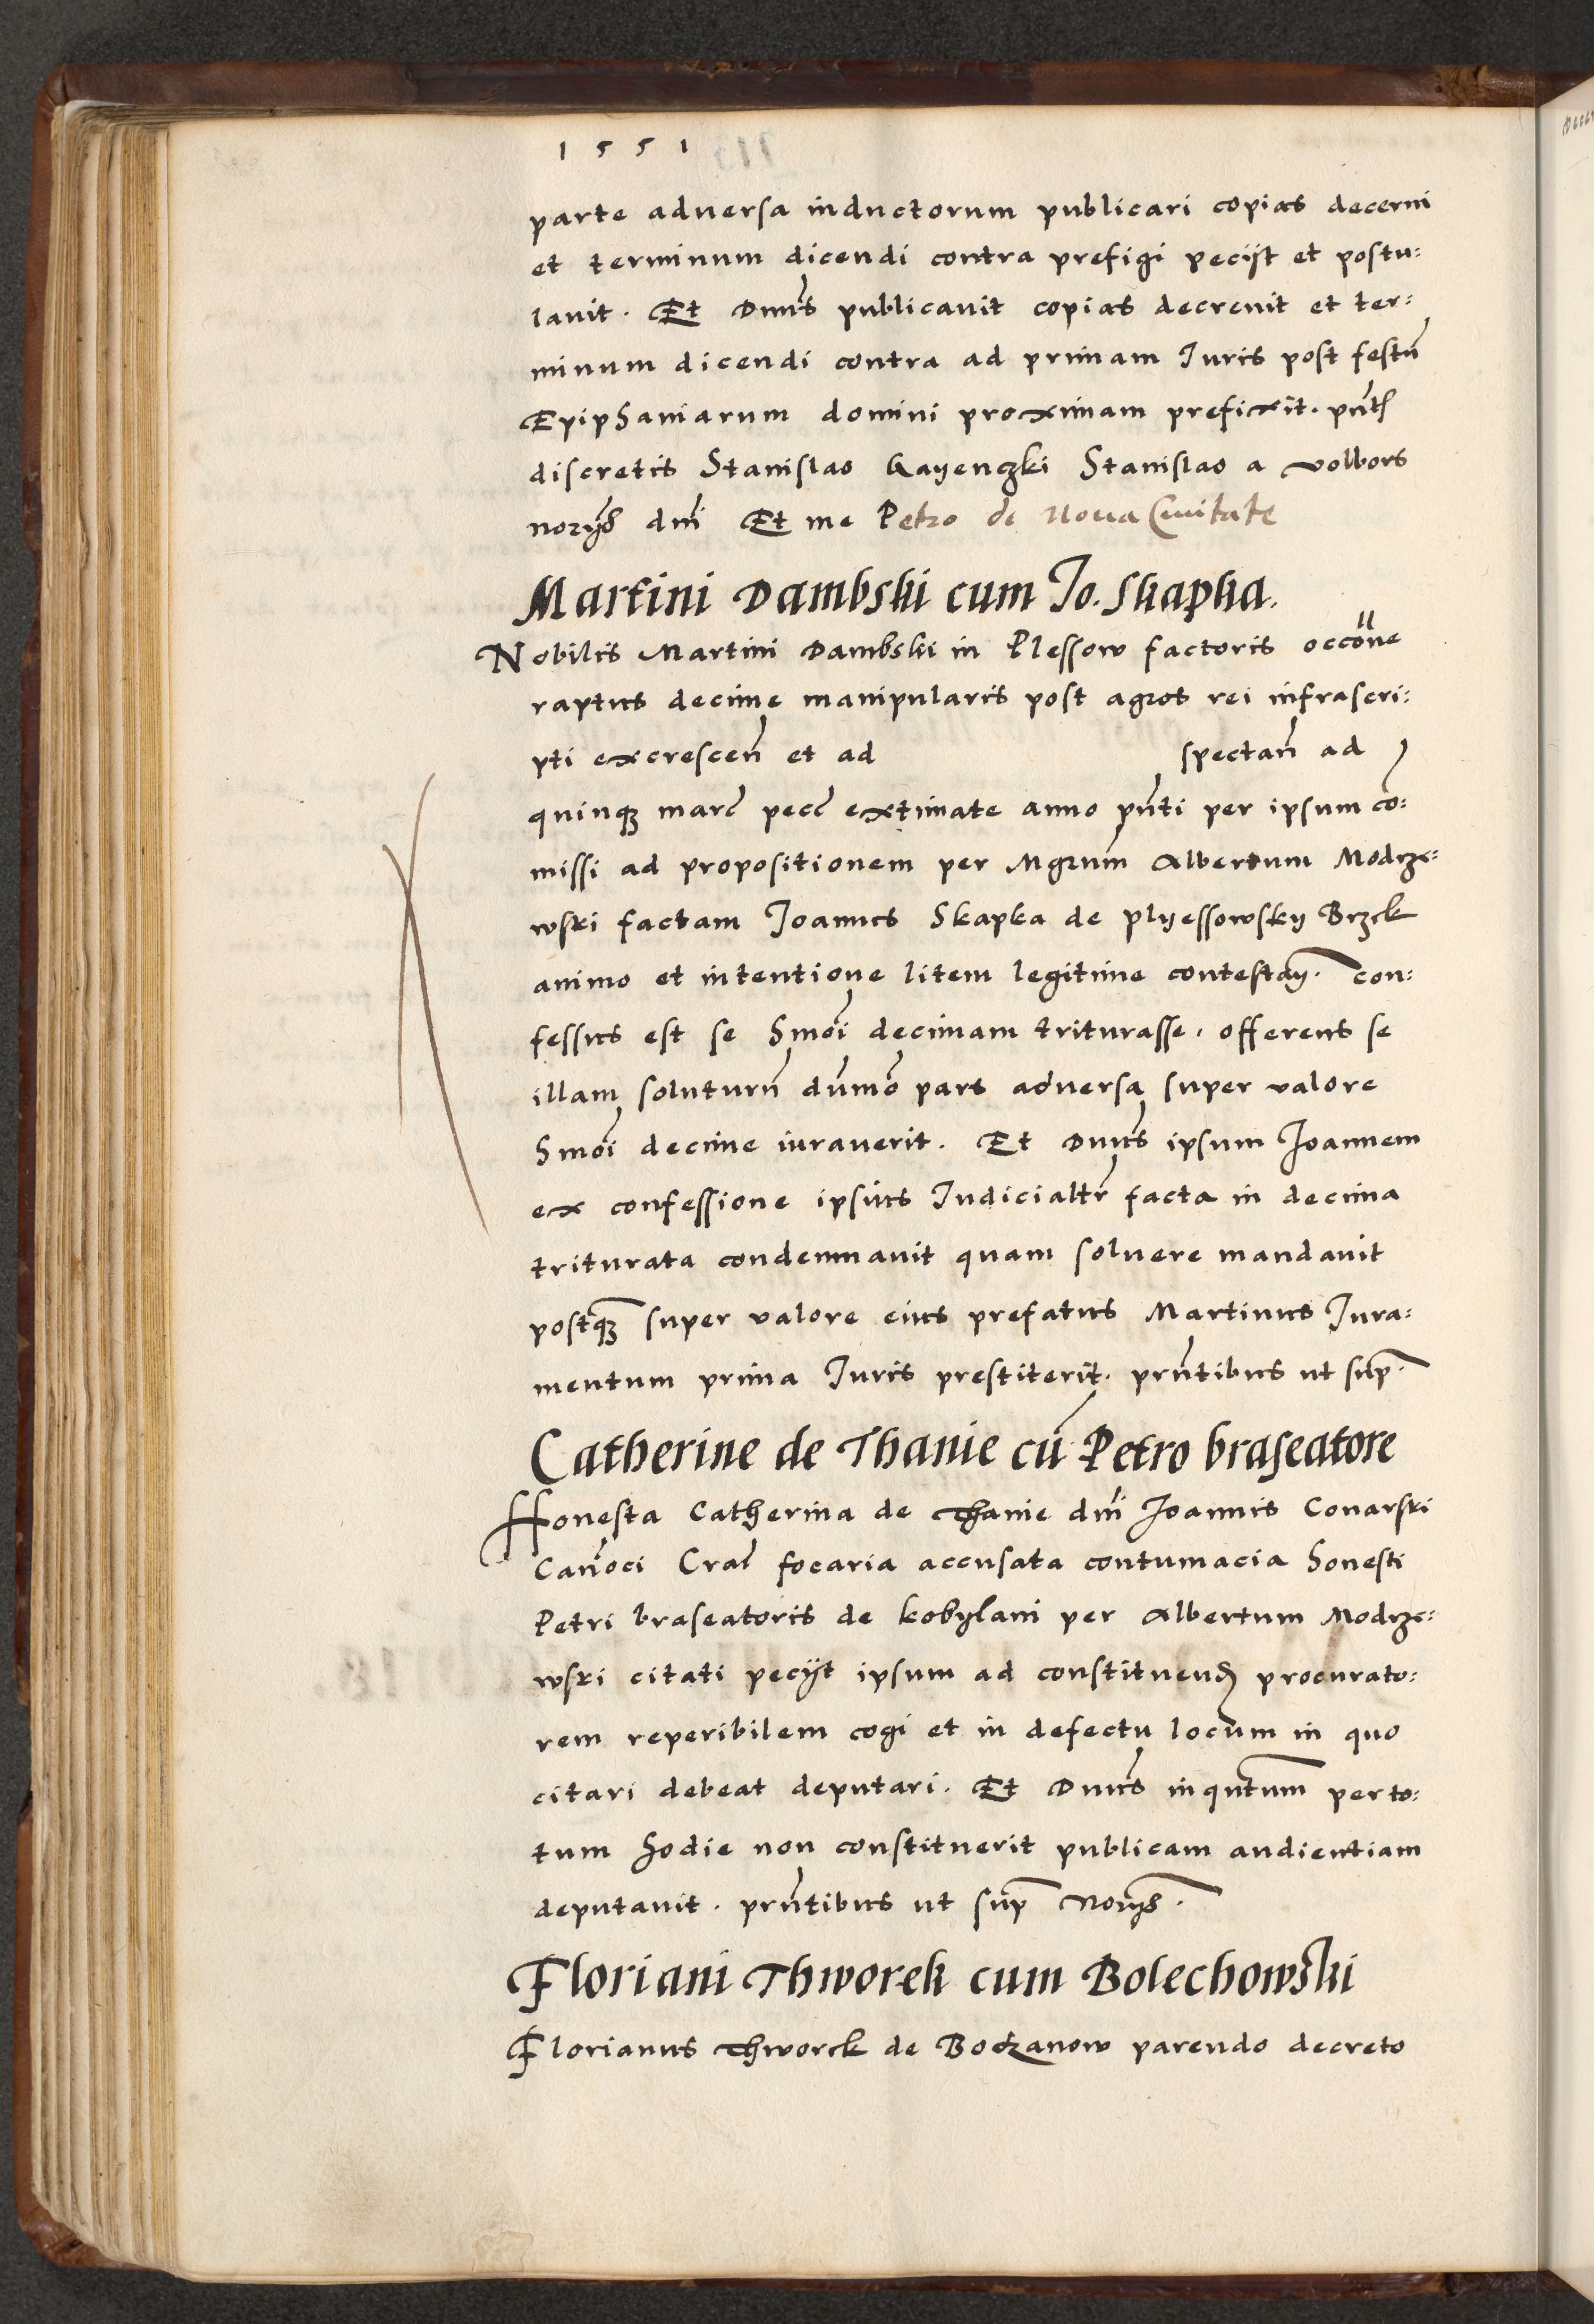 1551
parte adversa inductorum publicari copias decerni
et terminum dicendi contra prefigi pecijt et postu:
lavit. Et Dnus publicavit copias decrevit et ter:
minum dicendi contra ad primam Iuris post festū
Epiphaniarum domini proximam prefixit. pntħ
discretis Stanislao Gayenczki Stanislao a volbors
dnī Et me Petro de Nova Civitate
Martini Dambski cum Jo. Skapka.
Nobilis Martini Dambski in Plessow factoris occōne
raptus decime manipularis post agros rei infrascri:
pti excrescen̄ et ad spectan̄ ad
quinqȝ marc pecc extimate anno pn̄ti per ipsum cō:
missi ad propositionem per Mgrum Albertum Modrze:
wski factam Joannes Skapka de plyessowsky Brzek
animo et intentione litem legitime contestan̄. con:
fessus est se hmōi decimam triturasse. offerens se
illam soluturū dūmō pars adversa super valore
hmōi decime iuraverit. Et Dnus ipsum Joannem
ex confessione ipsius Iudicialtr̄ facta in decima
triturata condemnavit quam solvere mandavit
postqȝ super valore eius prefatus Martinus Iura:
mentum prima Iuris prestiterit. prn̄tibus ut sup̄.
Catherine de Thanie cū Petro braseatore
Honesta Catherina de Thanie dnī Joannis Conarski
Canoci Cracͥ focaria accusata contumacia honesti
Petri braseatoris de kobylani per Albertum Modrze:
wski citati pecijt ipsum ad constituenđ procurato:
rem reperibilem cogi et in defectu locum in quo
citari debeat deputari. Et Dnus inqntum per to:
tum hodie non constituerit publicam audientiam
deputavit. prn̄tibus ut sup̄ Norijs.
Floriani Thworek cum Bolechowski
Florianus Thworek de Boczanow parendo decreto